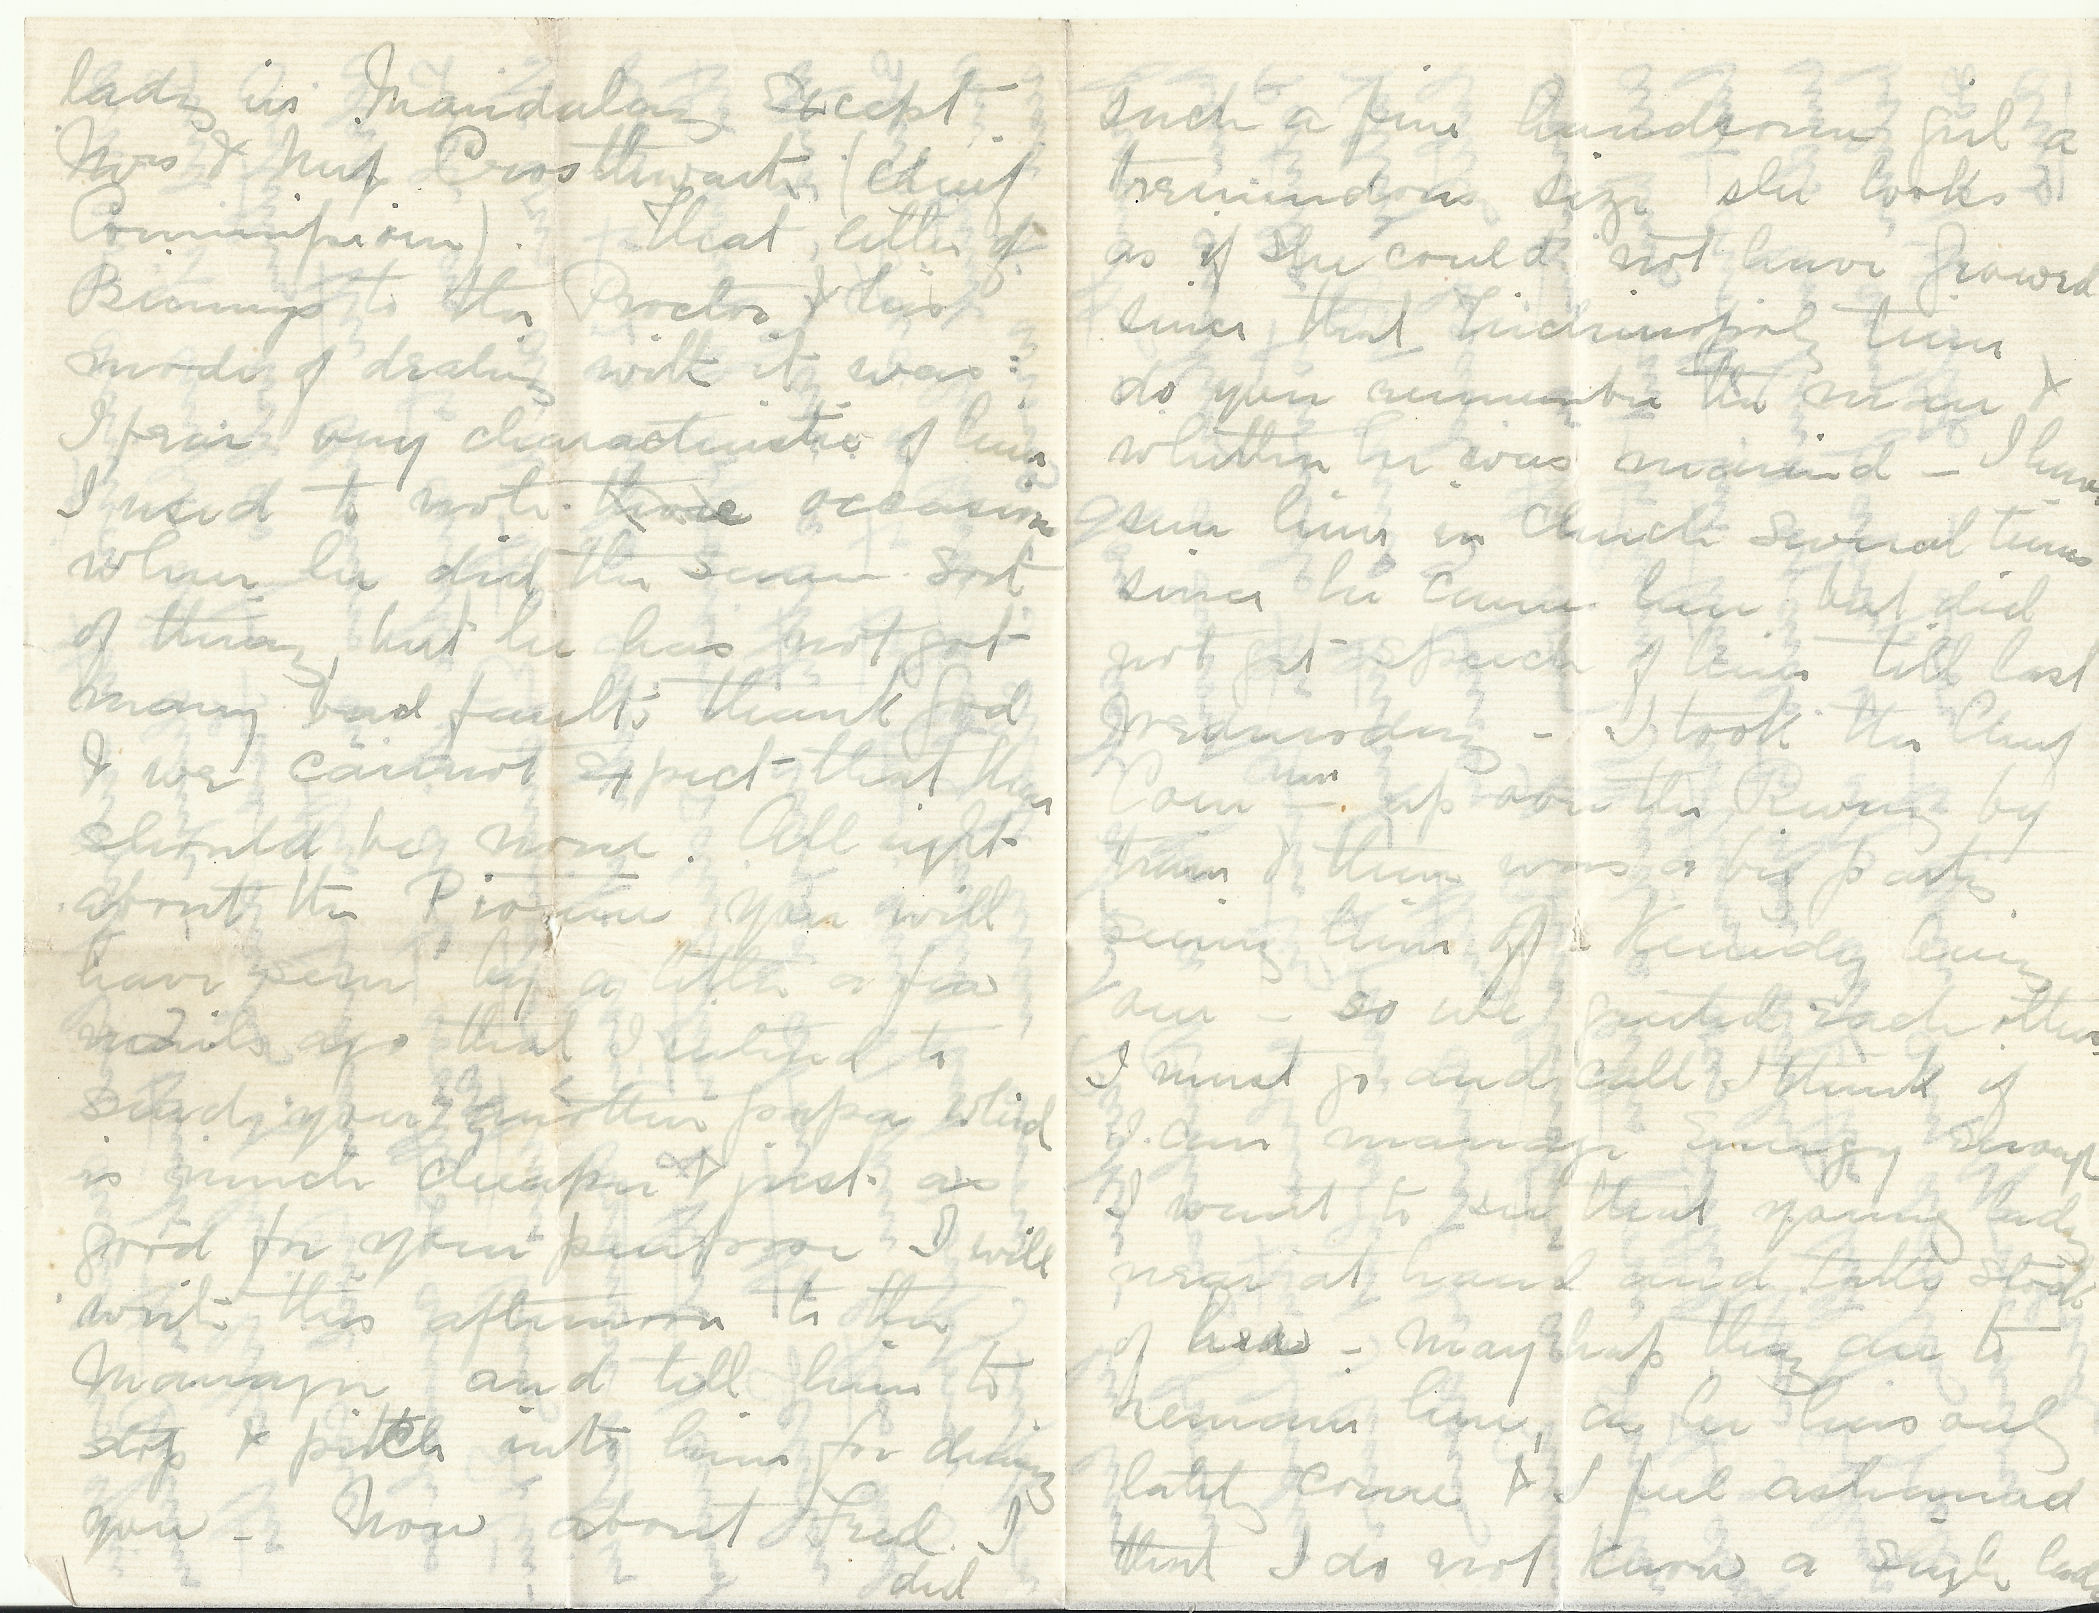 lady in Mandalay except
Mrs & Miss Crosthwaite (Chief
Commissioner). That letter of
to the Proctor & his
mode of dealing with it was
I fear very characteristic of him
I used to note those occasions
when he did the same sort
of thing, but he has not got
many bad faults thank God
& we cannot expect that there
should be none. All right
about the Pioneer you will
have seen by a letter a few
mails ago that I intend to
send you another paper which
is much cheaper & just as
good for your purpose I will
write this afternoon to the
Manager and tell him to
stop & pitch into him for
you - Now about Fred. I
did
such a fine handsome girl a
tremendous size she looks
as if she could not have growed
since that Trichinopoly time
do you remember the man &
whether he was married - I have
seen him in Church several times
since he came here but did
not get speech of him till last
Wednesday - I took the Chief
Comnr. up the by
train & there was a big party
seeing him off - being
one - so we greeted each other
I must go and call I think if
I can manage energy enough
I want to see that young lady
near at hand and take stock
of her - mayhap they are to
remain here, as he has only
lately come & I feel ashamed
that I do not know a single lady